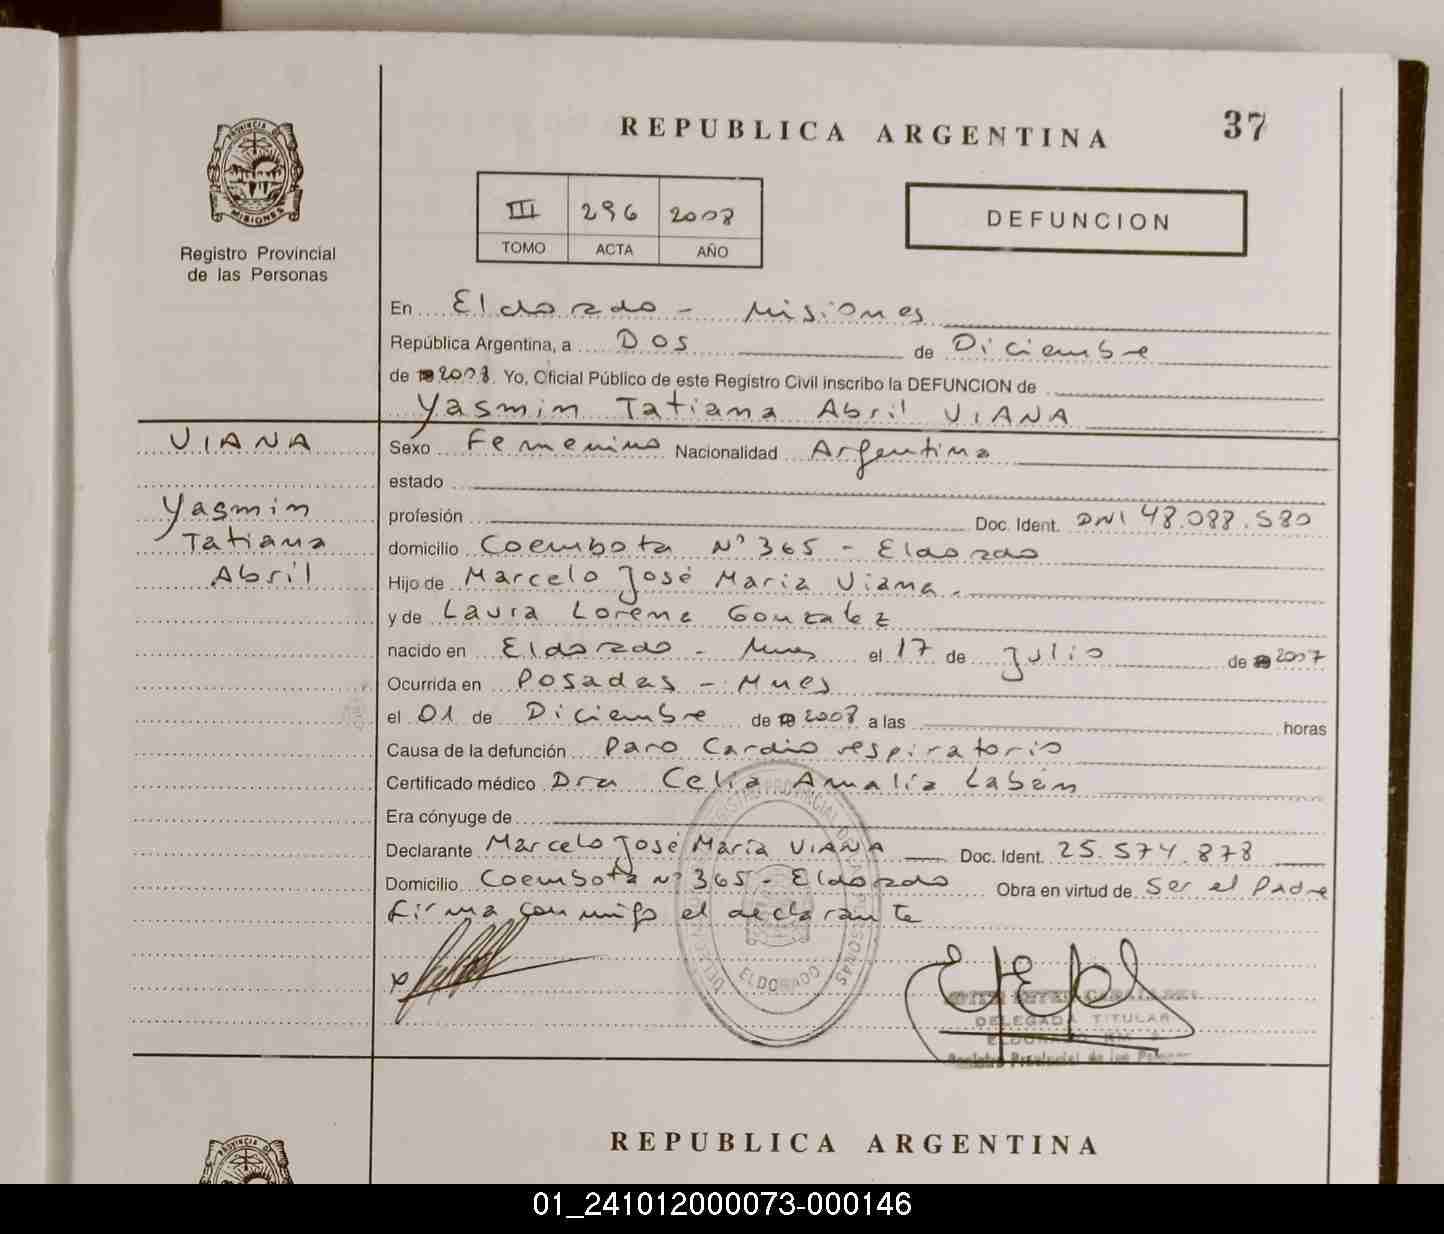 REPUBLICA ARGENTINA
37
PROVINCIA D
MISIONES
Registro Provincial
de las Personas
III 296 2008
TOMO ACTA AÑO
DEFUNCION
En Eldorado - Misiones
República Argentina, a Dos de Diciembre
de 2008. Yo, Oficial Público de este Registro Civil inscribo la DEFUNCION de
Yasmin Tatiana Abril VIANA
VIANA
Yasmin
Tatiana
Abril
Sexo Femenino Nacionalidad Argentina
estado
profesión Doc. Ident. DNI 48.088.580
domicilio Coembota Nº 365 - Eldorado
Hijo de Marcelo José Maria Viana.
y de Laura Lorena Gonzalez
nacido en Eldorado - Mnes el 17 de Julio de 2007
Ocurrida en Posadas - Mnes
el 01 de Diciembre de 2008 a las horas
Causa de la defunción Paro Cardio respiratorio
Certificado médico Dra Celia Amalia Labán
Era cónyuge de
Declarante Marcelo José María VIANA Doc. Ident. 25.574.878
Domicilio Coembota Nº 365 - Eldorado Obra en virtud de ser el Padre
firma conmigo el declarante
ELDORADO
DELEGADA TITULAR
ELDORADO KM
Registro Provincial de las
REPUBLICA ARGENTINA
01_241012000073-000146